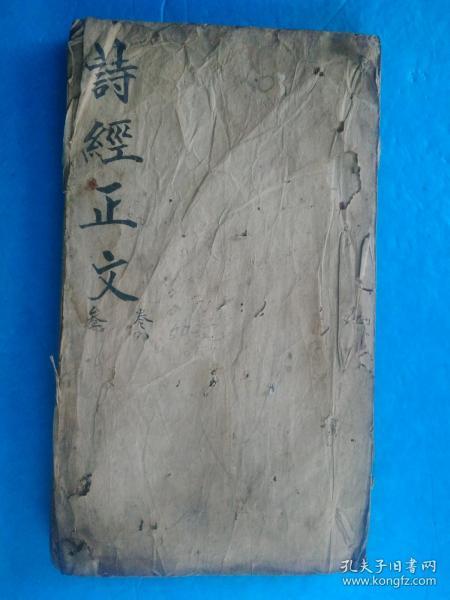 詩經正文
卷
孔夫子旧书网
www.kongfz.com